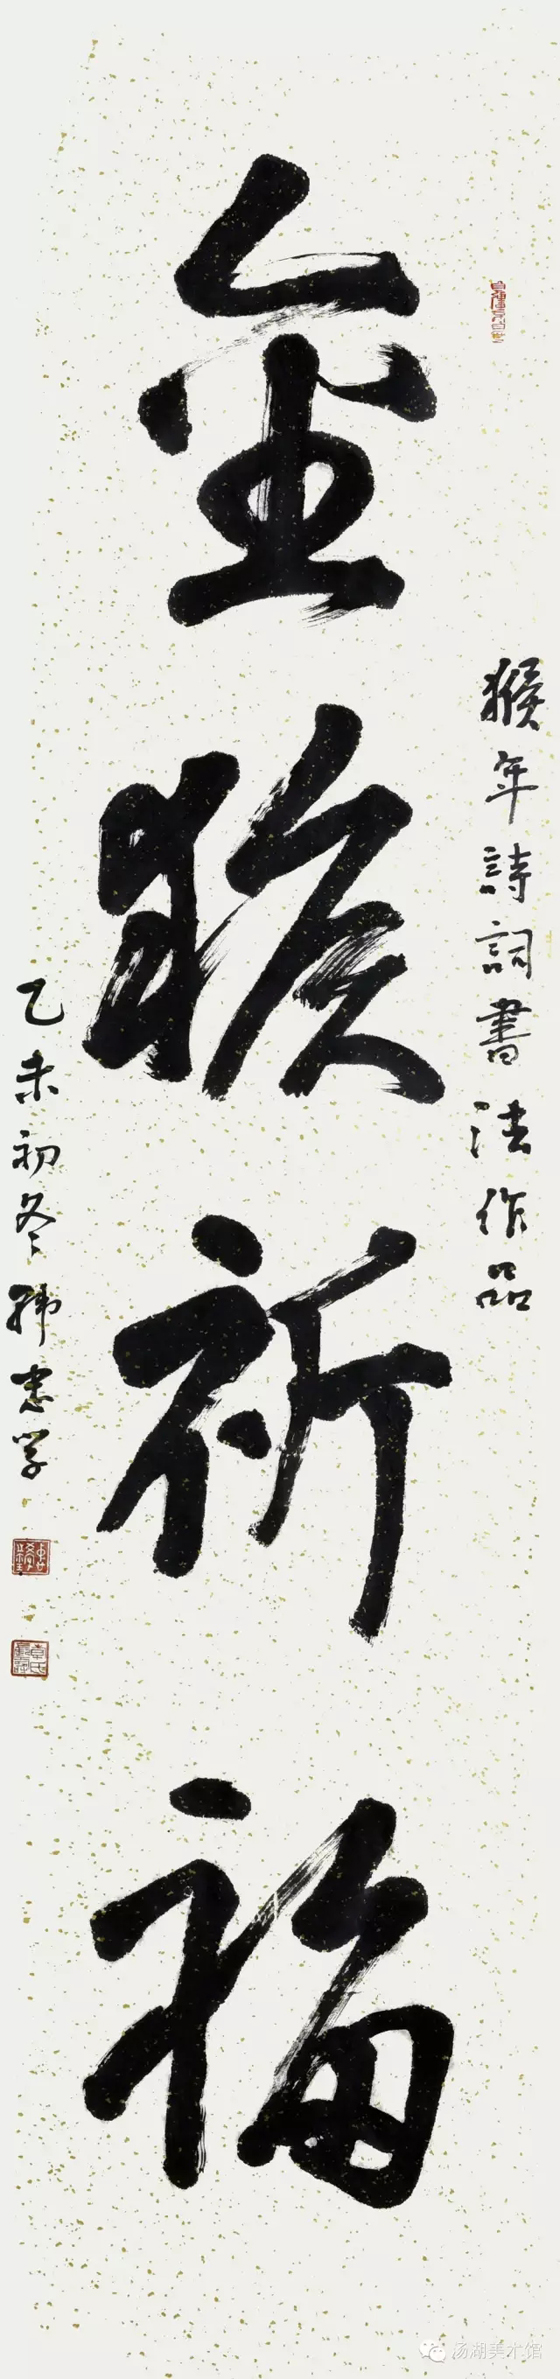 猴年詩詞書法作品
金猴祈福
乙未初冬
汤湖美术馆